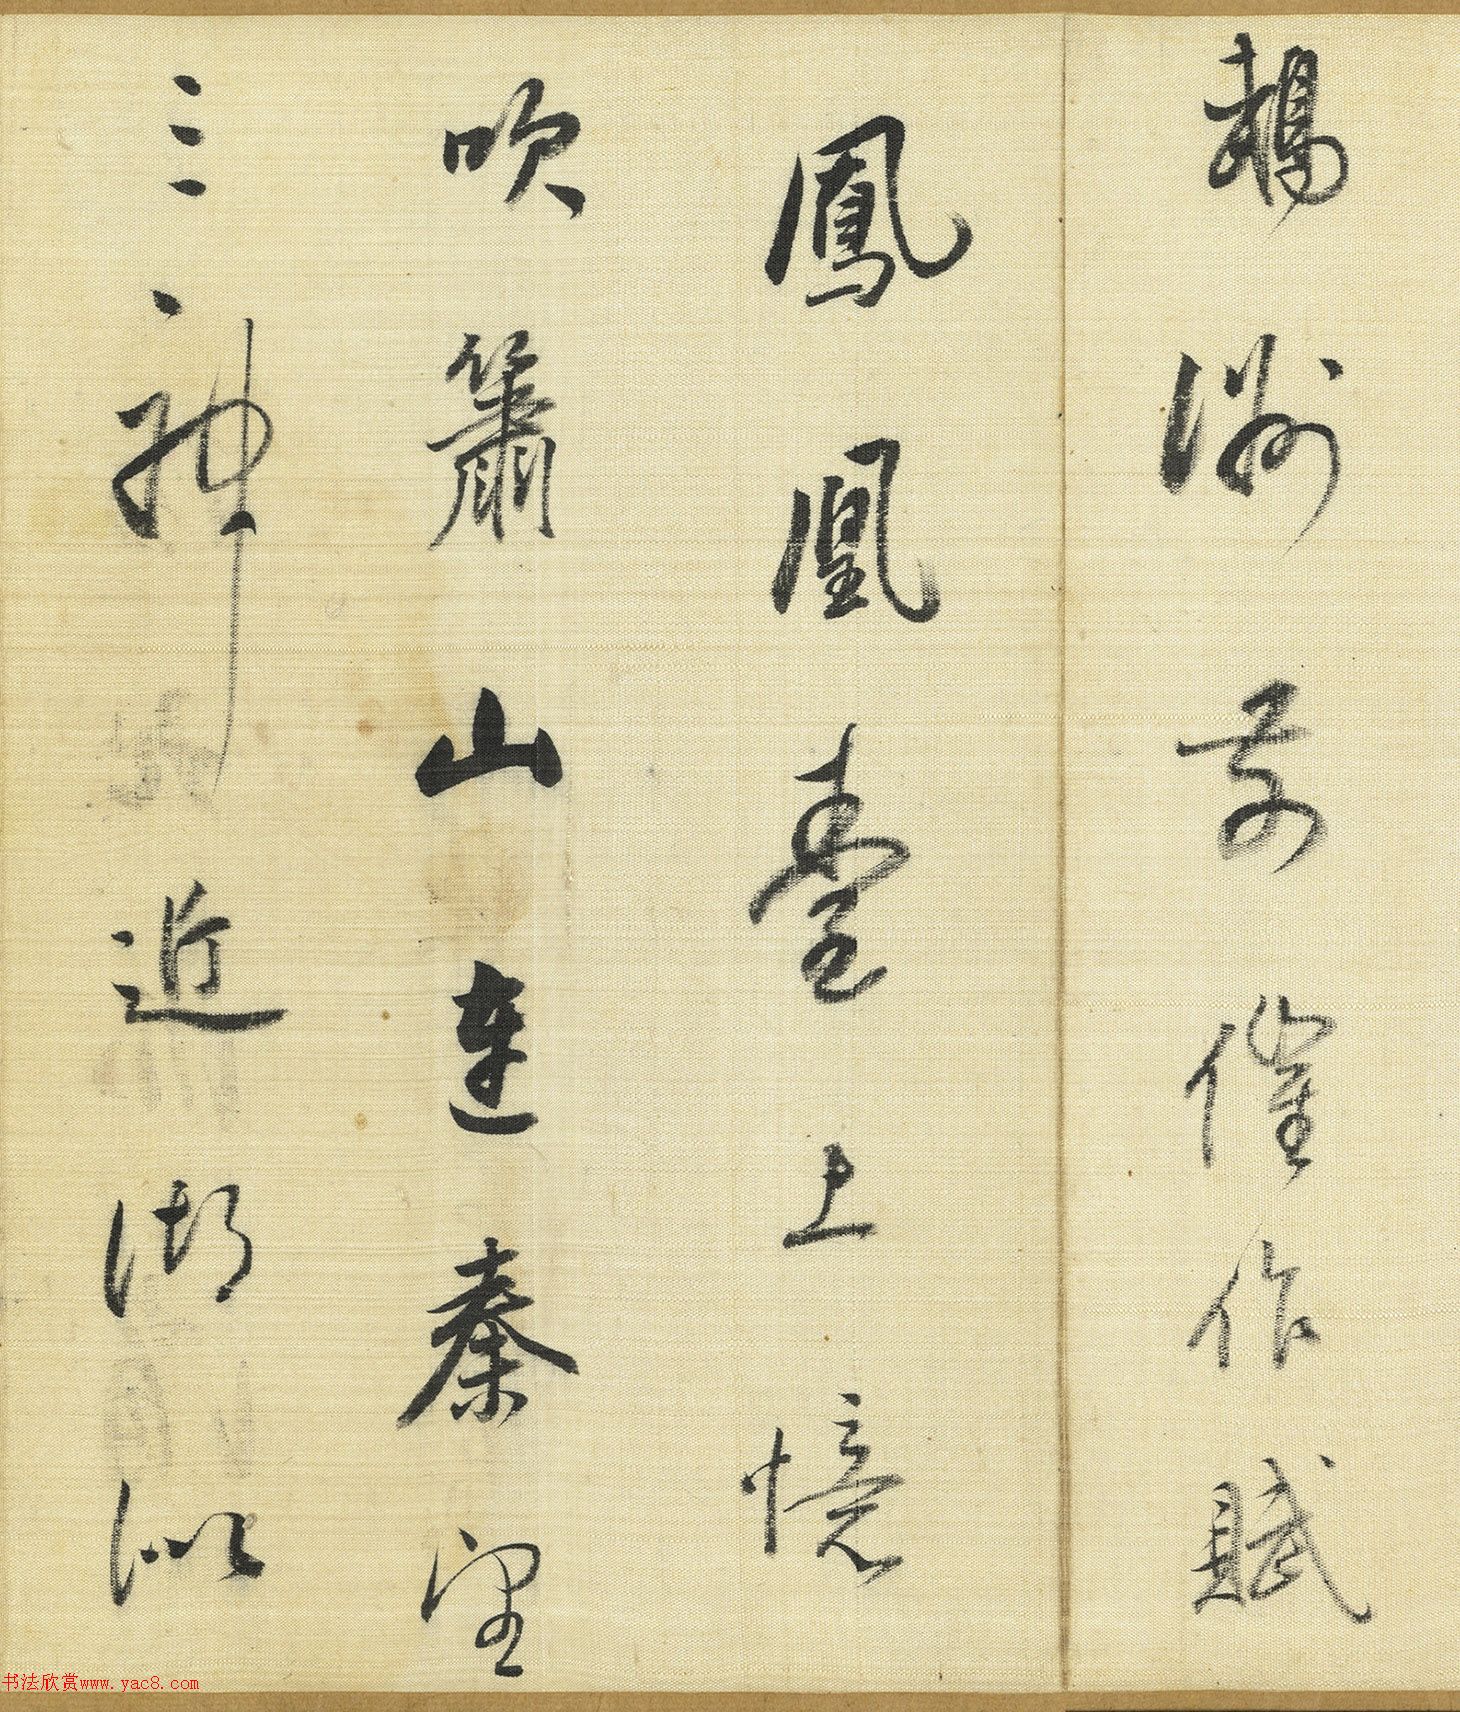 鵡洲前催作賦
鳳凰臺上憶
吹簫山連秦望
三神近湖似
书法欣赏www.yac8.com